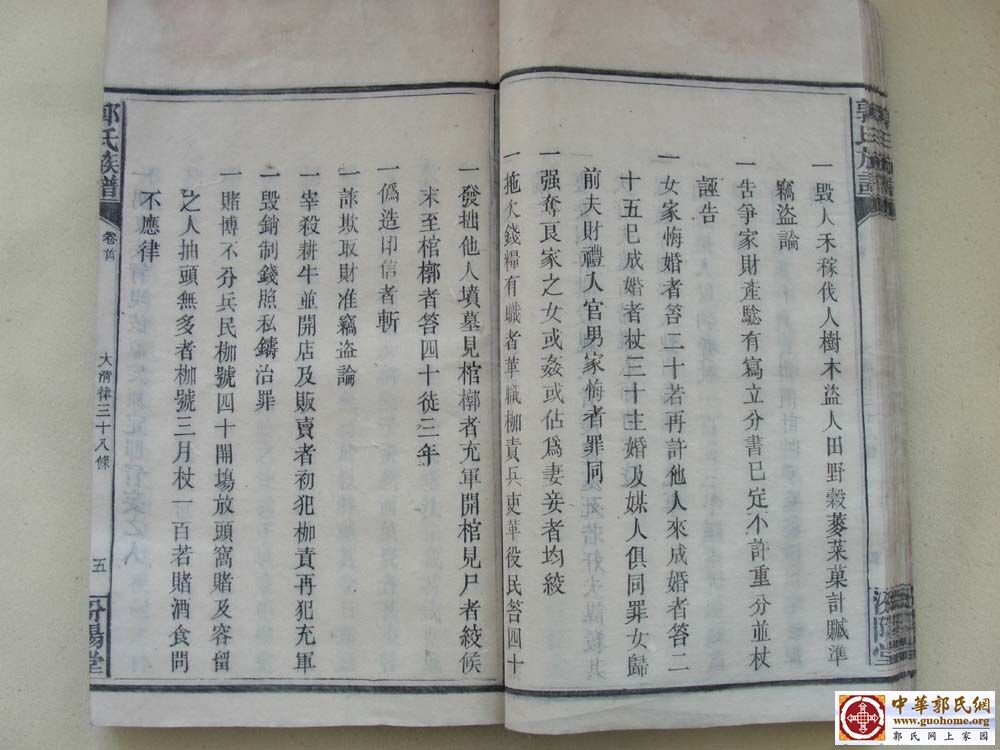 郭氏族譜
汾陽堂
一毀人禾稼伐人樹木盜人田野穀菱菜菓計贓準
竊盜論
一告爭家財產驗有寫立分書巳定不許重分並杖
誣告
一女家悔婚者笞三十若再許他人來成婚者笞二
十五巳成婚者杖三十主婚及媒人俱同罪女歸
前夫財禮入官男家悔者罪同
一强奪良家之女或姦或佔爲妻妾者均絞
一拖欠錢糧有職者革職枷責兵吏革役民笞四十
一發掘他人墳墓見棺槨者充軍開棺見尸者絞候
末至棺槨者笞四十徒三年
一僞造印信者斬
一詐欺取財准竊盜論
一宰殺耕牛並開店及販賣者初犯枷責再犯充軍
一毀銷制錢照私鑄治罪
一賭博不分兵民枷號四十開塲放頭窩賭及容留
之人抽頭無多者枷號三月杖一百若賭酒食問
不應律
郭氏族譜
卷首
大淸律三十八條
五
汾陽堂
中華郭氏網
www.guohome.org
郭氏网上家园